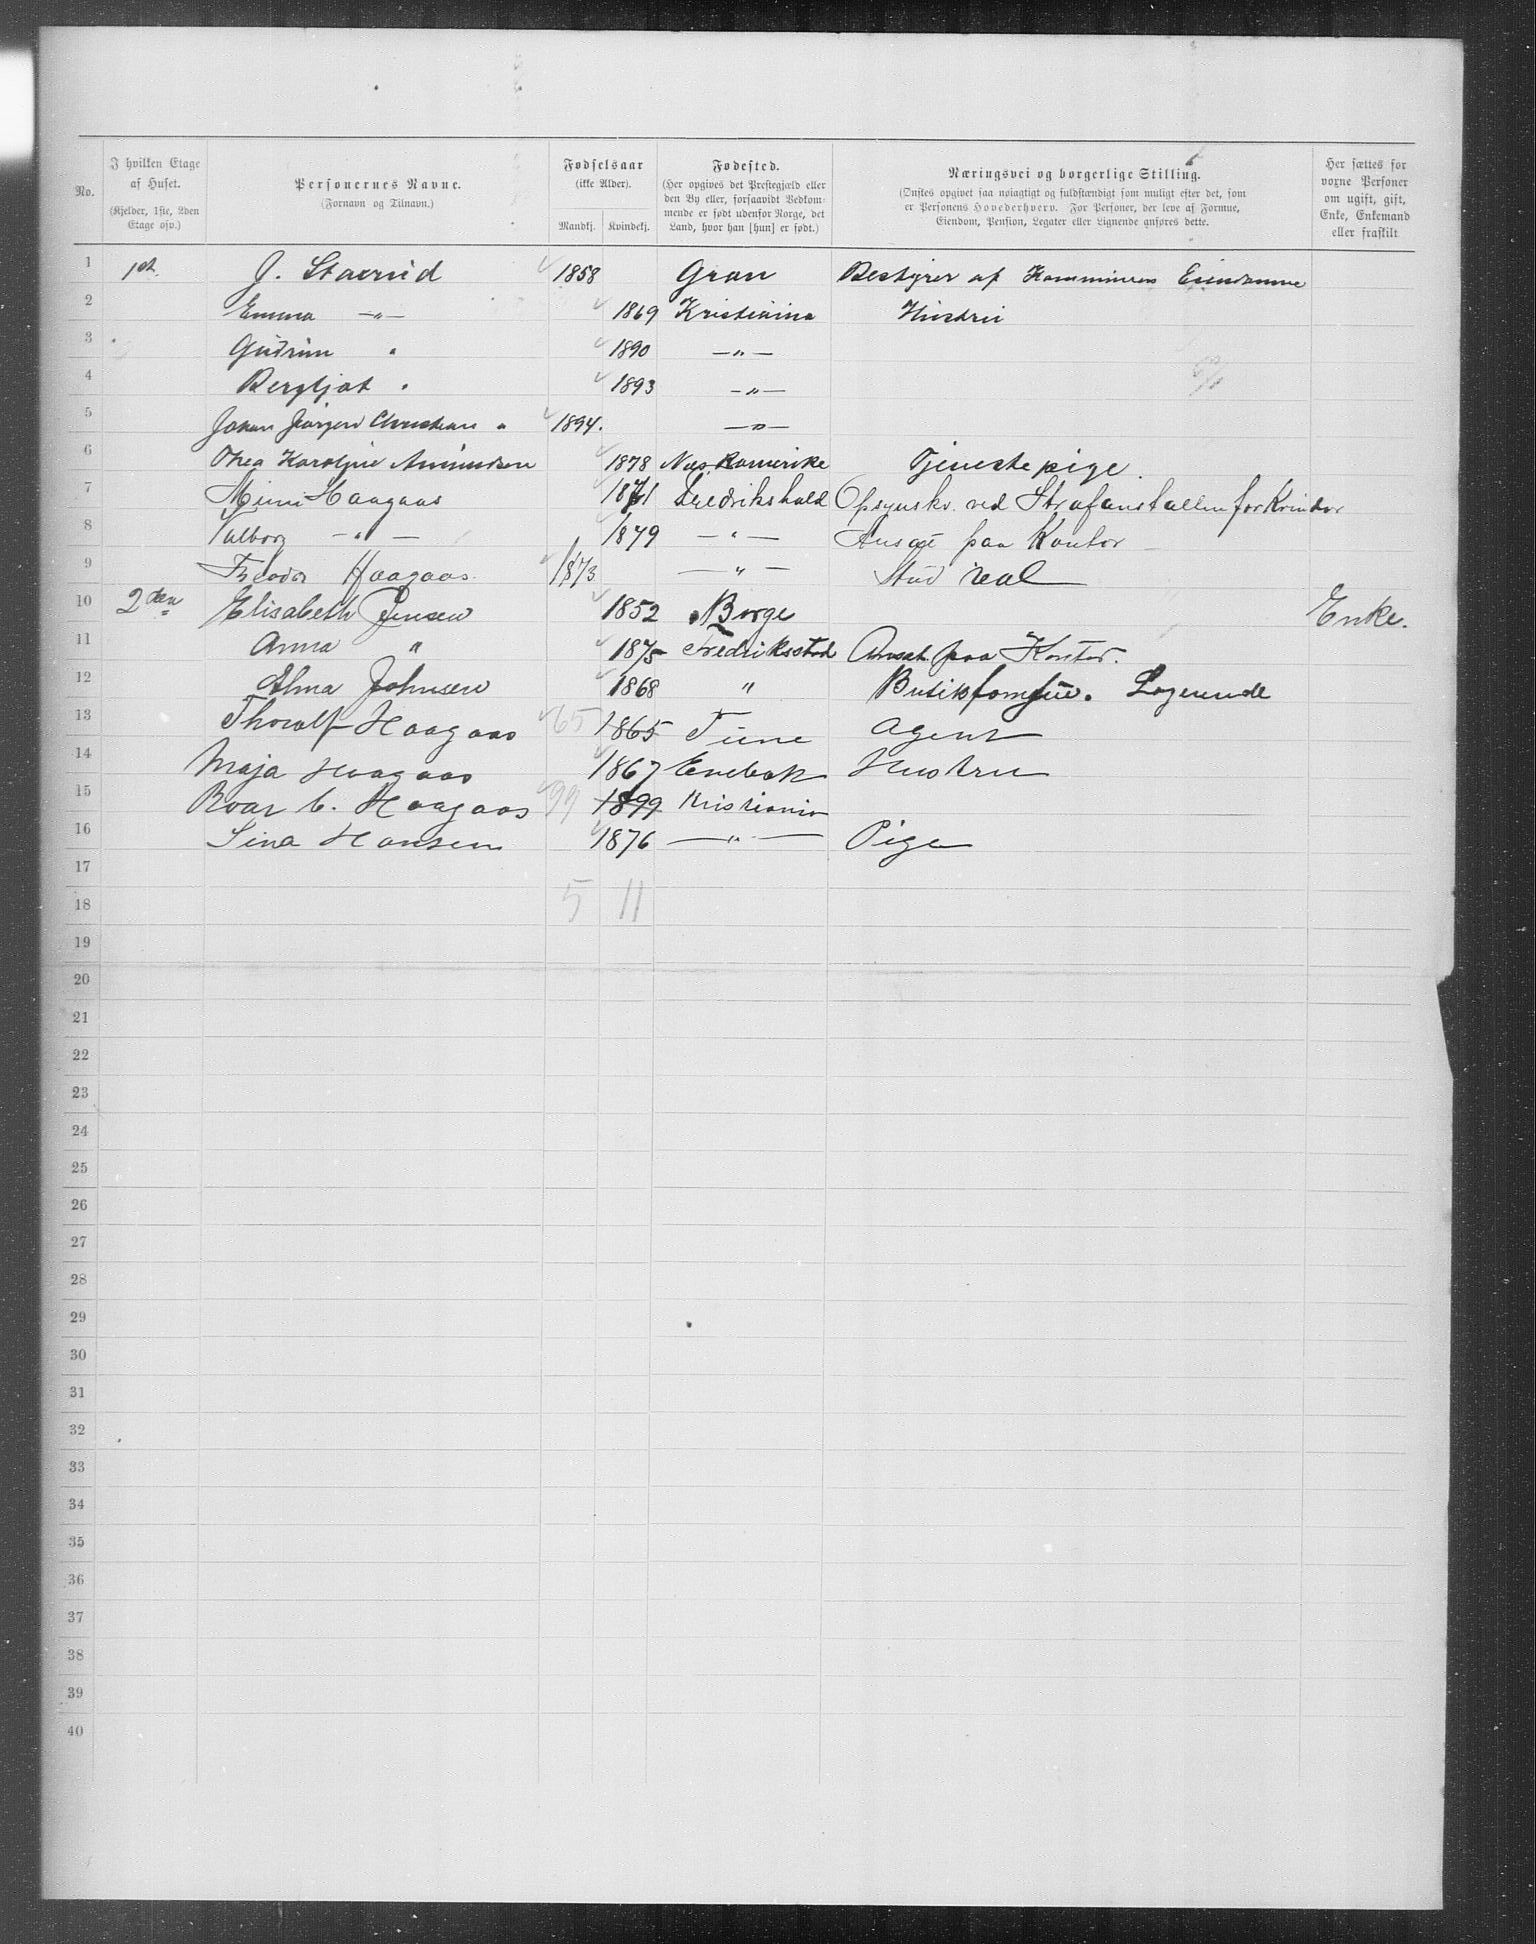 No. | I hvilken Etage af Huset. (Kjelder, 1ste, 2den Etage osv.) | Personernes Navne. (Fornavn og Tilnavn.) | Fødselsaar (ikke Alder). Mandkj. Kvindekj. | Fødested. (Her opgives det Prestegjæld eller den By eller, forsaavidt Vedkommende er født udenfor Norge, det Land, hvor han [hun] er født.) | Næringsvei og borgerlige Stilling. (Ønskes opgivet saa nøiagtigt og fuldstændigt som muligt efter det, som er Personens Hovederhverv. For Personer, der leve af Formue, Eiendom, Pension, Legater eller Lignende anføres dette.) | Her sættes for voxne Personer om ugift, gift, Enke, Enkemand eller fraskilt
1 1st. J. Staxrud 1858 Gran Bestyrer af Kommunens Eiendomme
2 Emma —"— 1869 Kristiania Hustru
3 Gudrun " 1890 —"—
4 Bergljot " 1893 —"—
5 Johan Jørgen Christian " 1894. —"—
6 Thea Karoline Amundsen 1878 Næs Romerike Tjenestepige
7 Mimi Haagaas 1871 Fredrikshald Opsynskv. ved Strafanstalten for Kvinder
8 Valborg —"— 1879 —"— Ansat paa Kontor
9 Theodor Haagaas 1873 —"— Stud real
10 2den Elisabeth Jensen 1852 Borge Enke.
11 Anna " 1875 Fredriksstad Ansat paa Kontor.
12 Alma Johnsen 1868 " Butikjomfru. Logerende
13 Thoralf Haagaas 65 1865 Tune Agent
14 Maja Haagaas 1867 Enebak Hustru
15 Roar C. Haagaas 99 1899 Kristiania
16 Lina Hansen 1876 —"— Pige
17
18 5 11
19
20
21
22
23
24
25
26
27
28
29
30
31
32
33
34
35
36
37
38
39
40